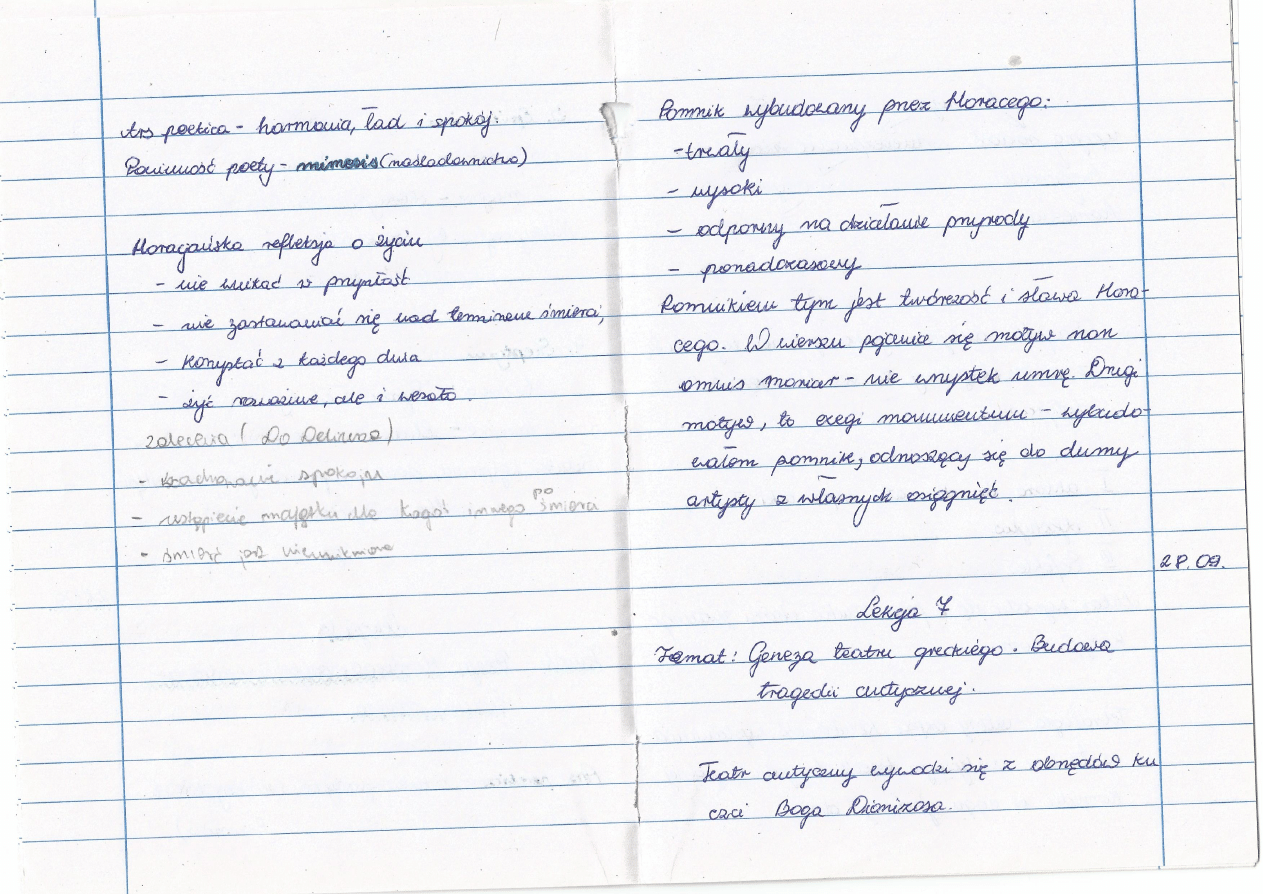 Ars poetica - harmonia, ład i spokój.
Powinność poety - mimesis (naśladownictwo)
Horacjańska refleksja o życiu
- nie wnikać w przyszłość
- nie zastanawiać się nad terminem śmierci,
- Korzystać z każdego dnia
- żyć rozważnie, ale i wesoło.
zalecenia ( Do Deliusza)
- zachowanie spokoju
- ustąpienie majątku dla kogoś innego po śmierci
- śmierć jest nieunikniona
Pomnik wybudowany przez Horacego:
- trwały
- wysoki
- odporny na działanie przyrody
- ponadczasowy
Pomnikiem tym jest twórczość i sława Hora-
cego. W wierszu pojawia się motyw non
omnis moriar - nie wszystek umrę. Drugi
motyw, to exegi monumentum - wybudo-
wałem pomnik, odnoszący się do dumy
artysty z własnych osiągnięć.
28.09.
Lekcja 7
Temat: Geneza teatru greckiego. Budowa
tragedii antycznej.
Teatr antyczny wywodzi się z obrzędów ku
czci Boga Dionizosa.